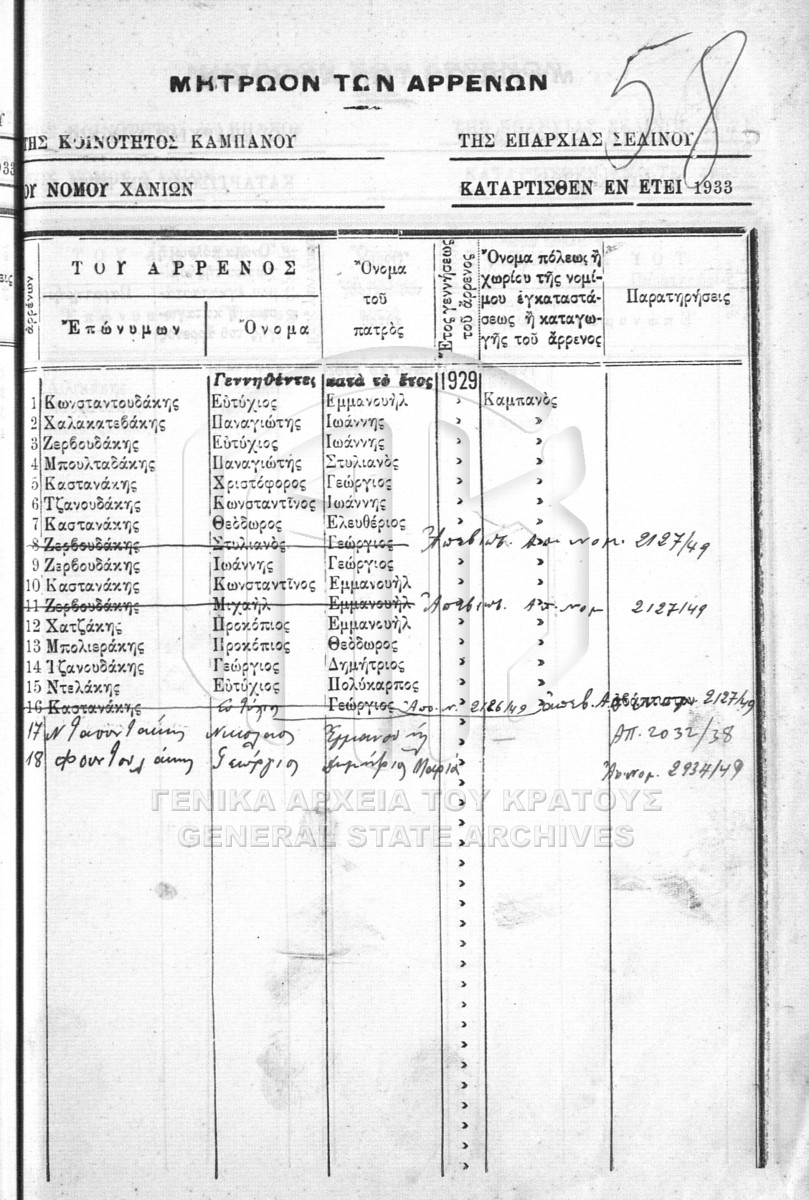 58
ΜΗΤΡΩΟΝ ΤΩΝ ΑΡΡΕΝΩΝ
ΤΗΣ ΚΟΙΝΟΤΗΤΟΣ ΚΑΜΠΑΝΟΥ ΤΗΣ ΕΠΑΡΧΙΑΣ ΣΕΛΙΝΟΥ
ΟΥ ΝΟΜΟΥ ΧΑΝΙΩΝ ΚΑΤΑΡΤΙΣΘΕΝ ΕΝ ΕΤΕΙ 1933
ἀρρένων
ΤΟΥ ΑΡΡΕΝΟΣ
Ἐπώνυμων Ὄνομα
Ὄνομα
τοῦ
πατρὸς
Ἔτος γεννήσεως
τοῦ ἄρρενος
Ὄνομα πόλεως ἢ
χωρίου τῆς νομί-
μου ἐγκαταστά-
σεως ἢ καταγω-
γῆς τοῦ ἄρρενος
Παρατηρήσεις
Γεννηθέντες κατὰ τὸ ἔτος 1929
1 Κωνσταντουδάκης Εὐτύχιος Ἐμμανουήλ » Καμπανὸς
2 Χαλακατεβάκης Παναγιώτης Ἰωάννης » »
3 Ζερβουδάκης Εὐτύχιος Ἰωάννης » »
4 Μπουλταδάκης Παναγιώτης Στυλιανὸς » »
5 Καστανάκης Χριστόφορος Γεώργιος » »
6 Τζανουδάκης Κωνσταντῖνος Ἰωάννης » »
7 Καστανάκης Θεόδωρος Ἐλευθέριος » »
8 Ζερβουδάκης Στυλιανὸς Γεώργιος Ἀπεβιωσ. Απ. νομ. 2127/49
9 Ζερβουδάκης Ἰωάννης Γεώργιος » »
10 Καστανάκης Κωνσταντῖνος Ἐμμανουήλ » »
11 Ζερβουδάκης Μιχαὴλ Ἐμμανουήλ Ἀπεβιωσ. Απ. νομ 2127/49
12 Χατζάκης Προκόπιος Ἐμμανουήλ » »
13 Μπολιεράκης Προκόπιος Θεόδωρος » »
14 Τζανουδάκης Γεώργιος Δημήτριος » »
15 Ντελάκης Εὐτύχιος Πολύκαρπος » »
16 Καστανάκης Γεώργιος Απο. ν. 2126/49 ἀπεβ. 2127/49
17 Νικόλαος Ἐμμανουήλ ΑΠ. 2032/38
18 Γεώργιος Μαρία Απ. νομ. 2934/49
ΓΕΝΙΚΑ ΑΡΧΕΙΑ ΤΟΥ ΚΡΑΤΟΥΣ
GENERAL STATE ARCHIVES